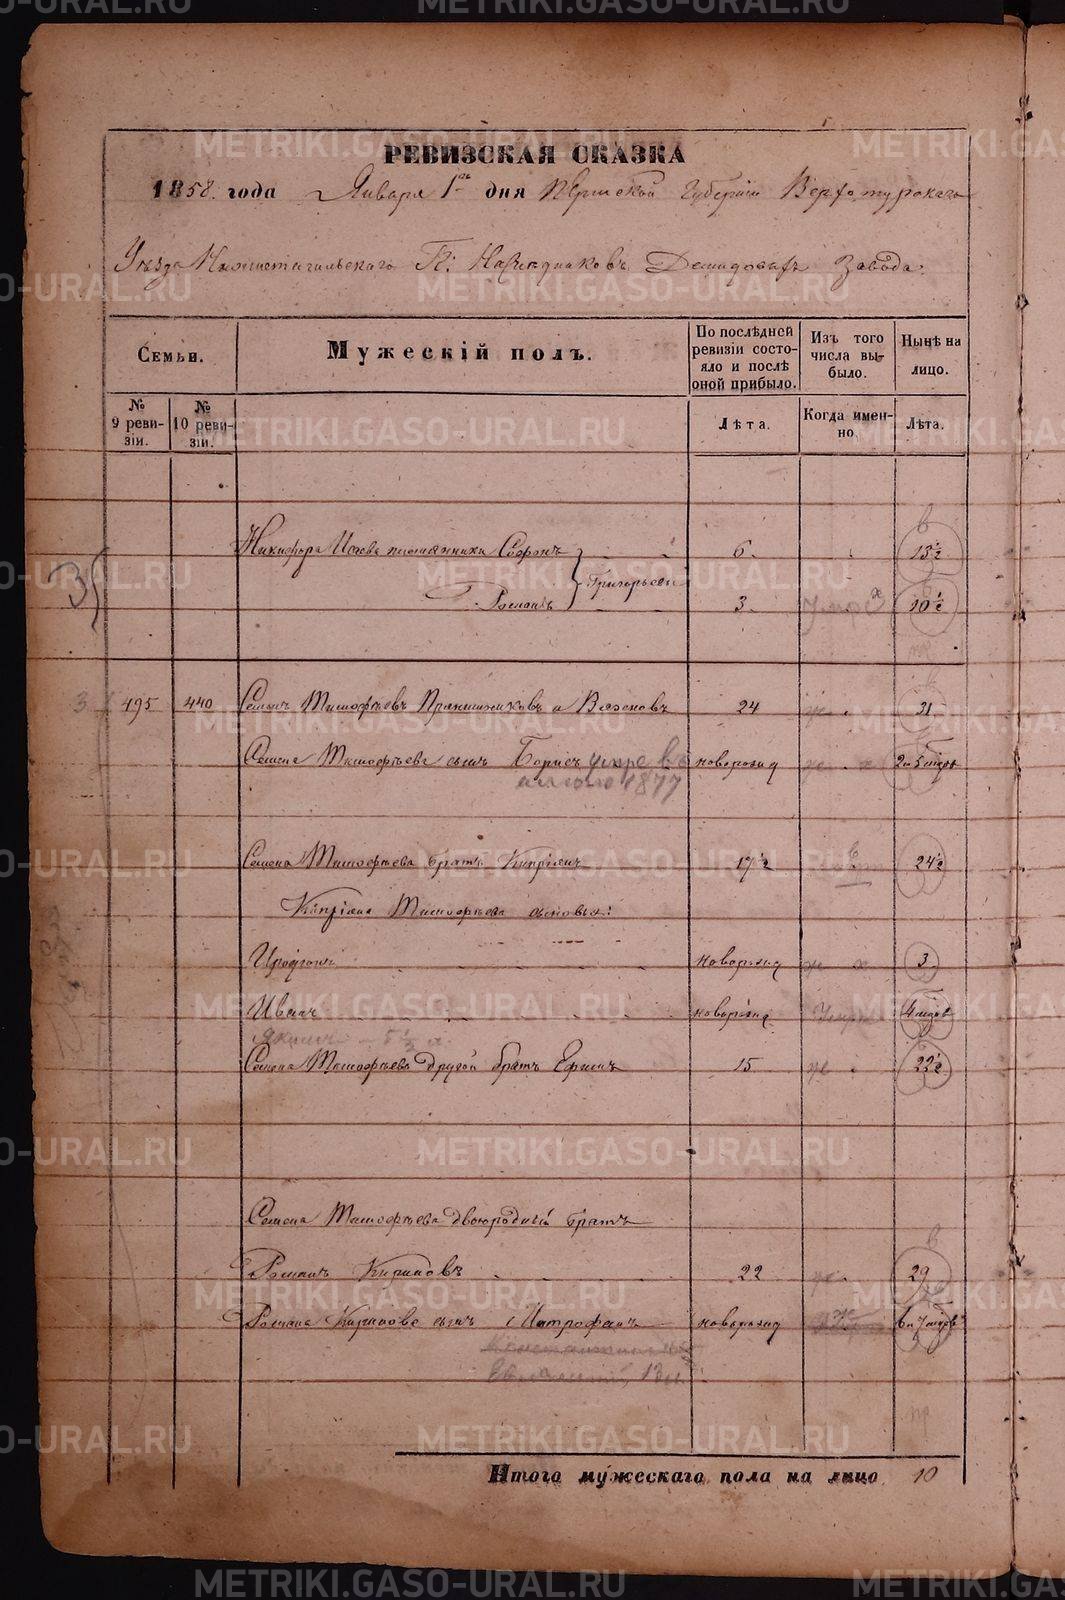 РЕВИЗСКАЯ СКАЗКА
1858 года Января 1го дня Пермской Губернии Верхотурскаго
Уѣзда Нижнетагильскаго Г: Наслѣдниковъ Демидовыхъ Завода.
Семьи.
Мужескій полъ.
По послѣдней ревизіи состояло и послѣ оной прибыло.
Изъ того числа выбыло.
Нынѣ на лицо.
№ 9 ревизіи.
№ 10 ревизіи.
Лѣта.
Когда именно.
Лѣта.
Никифора Исаева племянники Софонъ 6. 13½
Григорьевы
Романъ 3. умр 10½
3
3 495 440 Семенъ Тимофѣевъ и Важеновъ 24 31
Семена Тимофѣева сынъ Борисъ умре въ новорожд 2 и 5 мцовъ
1877
Семена Тимофѣева братъ Кипріянъ 17½ 24½
Кипріяна Тимофѣева сыновья:
Иродіонъ новорожд 3
Иванъ новорожд Умре 4 мцовъ
Якимъ 5½ л.
Семена Тимофѣева другой братъ Ефимъ 15 22½
Семена Тимофѣева двоюродный братъ
Романъ Кириловъ 22 29
Романа Кирилова сынъ Митрофанъ новорожд 6 и 7 мцовъ
13
Итого мужескаго пола на лицо 10
METRIKI.GASO-URAL.RU